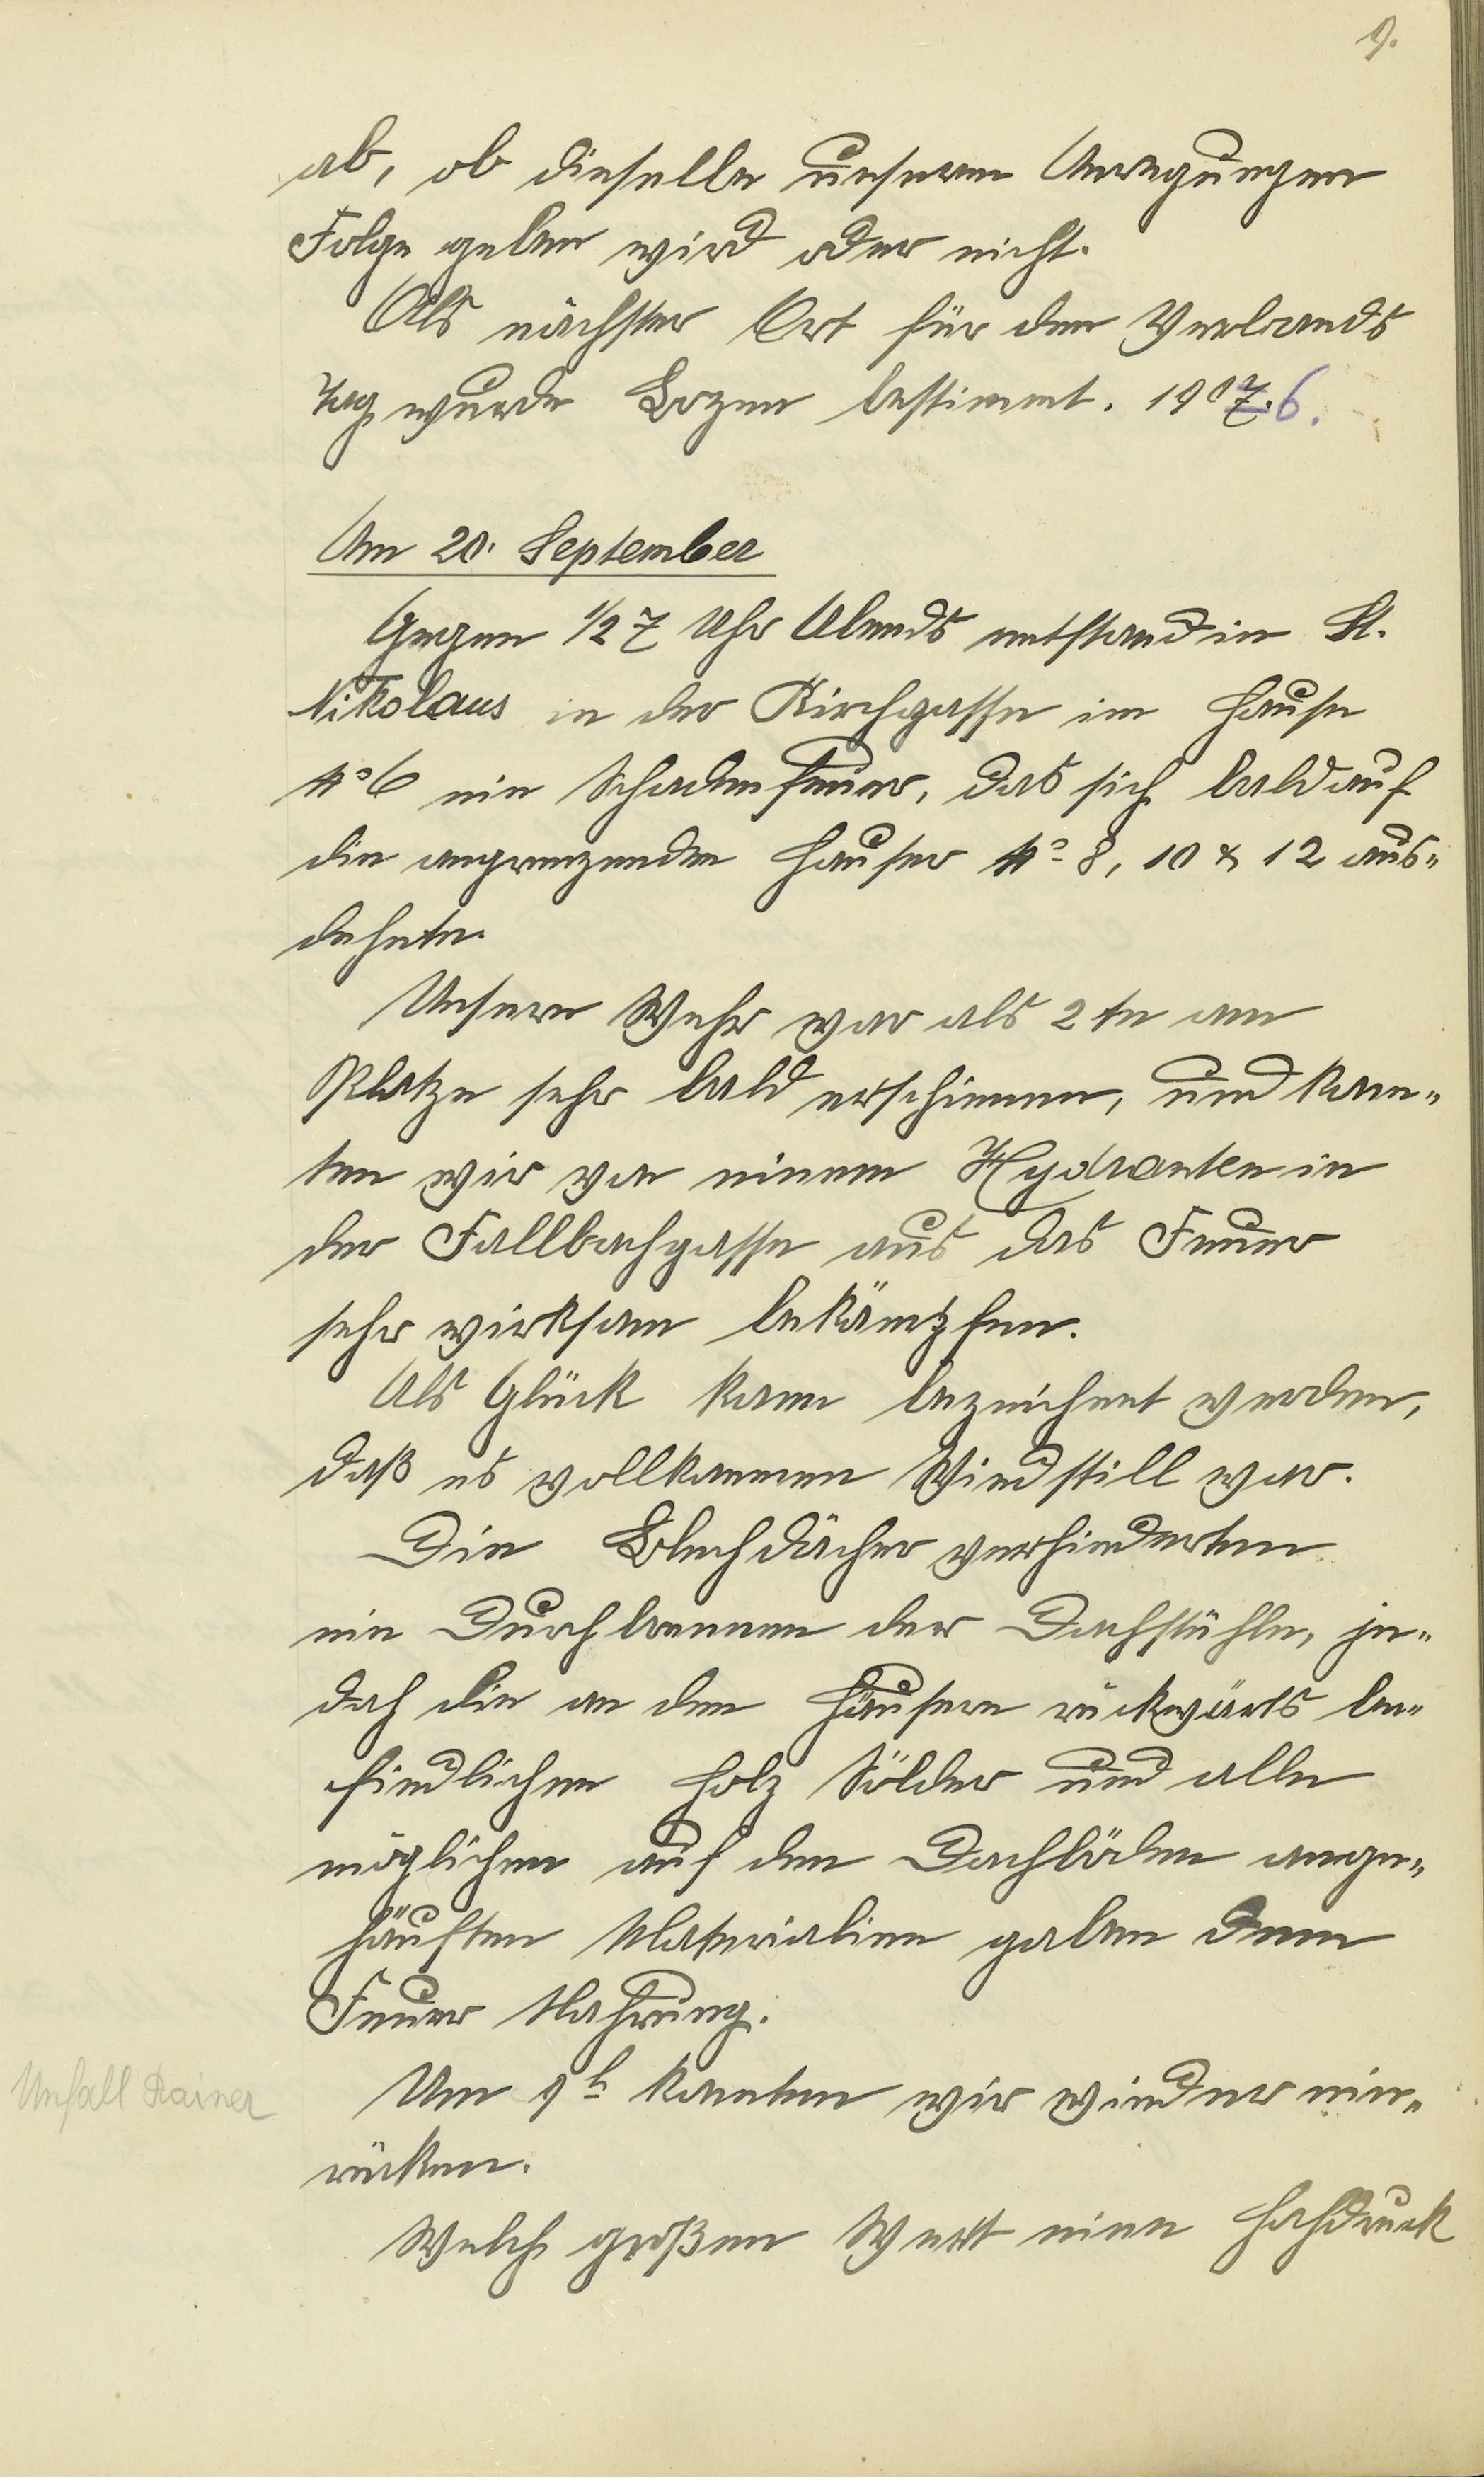 9.
ab, ob dieselbe unseren Anregungen
Folge geben wird oder nicht.
Als nächster Ort für den Verbands
Tag wurde Bozen bestimmt. 1907. 6.
Am 20. September
Gegen 1/2 7 Uhr Abends entstand in St.
Nikolaus in der Kirchgasse im Hause
No 6 ein Schadenfeuer, das sich bald auf
die angrenzenden Hauser No 8, 10 & 12 aus-
dehnte.
Unsere Wehr war als 2te am
Platze sehr bald erschienen, und kon-
ten wir von einem Hydranten in
der Fallbachgasse aus das Feuer
sehr wirksam bekämpfen.
Als Glück kann bezeichnet werden,
daß es vollkommen Windstill war.
Die Blechdächer verhinderten
ein Durchbrennen der Dachstühle, je-
doch die an den Häusern rückwärts be-
findlichen Holz Sölder und alle
möglichen auf den Dachböden ange-
häuften Materialien gaben dem
Feuer Nahrung.
Unfall Rainer
Um 9h konnten wir wieder ein-
rücken.
Welch großen Wert eine Hochdruck